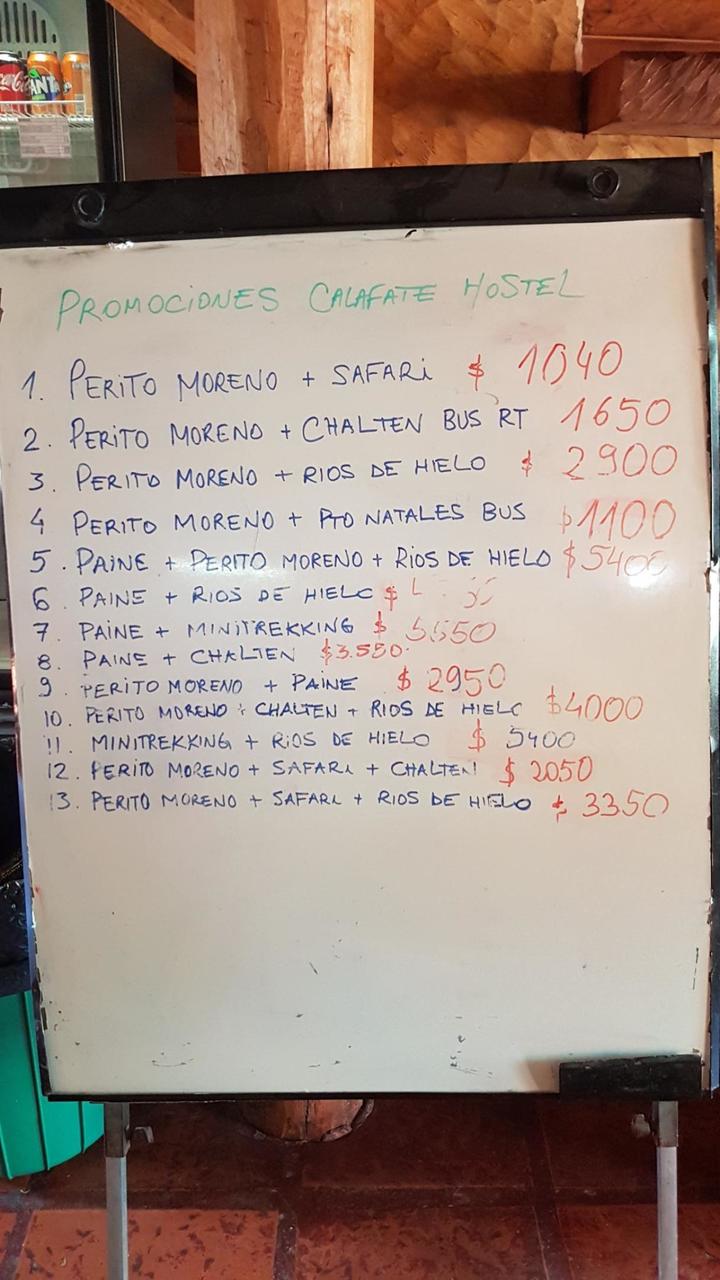 PROMOCIONES CALAFATE HOSTEL
1. PERITO MORENO + SAFARI $ 1040
2. PERITO MORENO + CHALTEN BUS RT 1650
3. PERITO MORENO + RIOS DE HIELO $ 2900
4 PERITO MORENO + PTO NATALES BUS $1100
5. PAINE + PERITO MORENO + RIOS DE HIELO $5400
6 PAINE + RIOS DE HIELO $
7. PAINE + MINITREKKING $ 5550
8. PAINE + CHALTEN $3.550.
9. PERITO MORENO + PAINE $ 2950
10. PERITO MORENO + CHALTEN + RIOS DE HIELO $4000
11. MINITREKKING + RIOS DE HIELO $ 5400
12. PERITO MORENO + SAFARI + CHALTEN $ 2050
13. PERITO MORENO + SAFARI + RIOS DE HIELO $ 3350